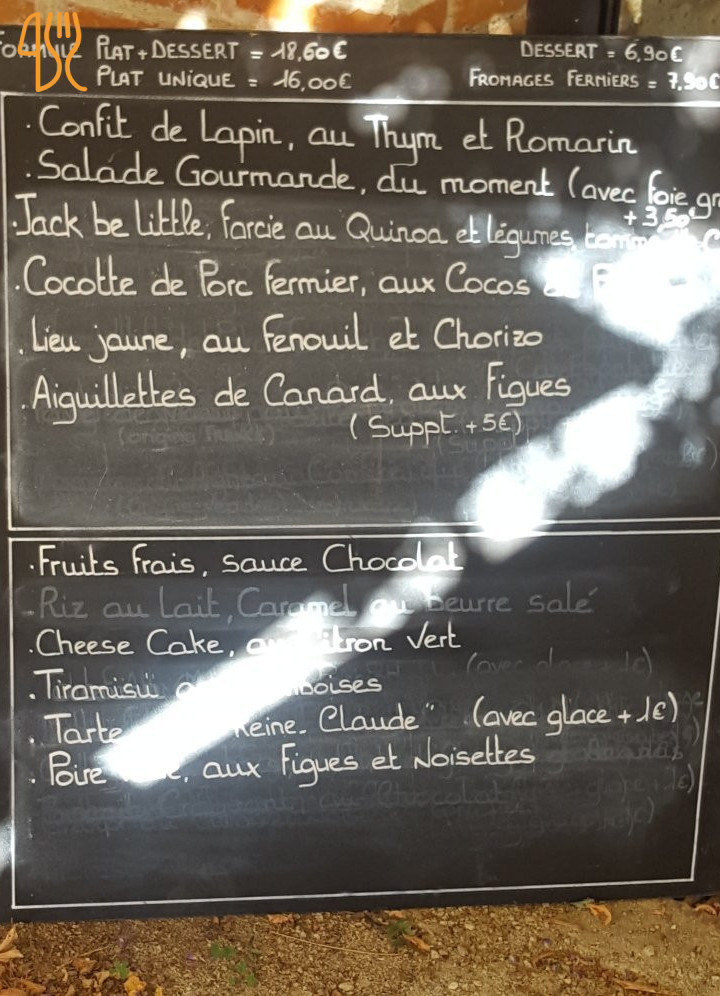 FORMULE PLAT + DESSERT = 18,60€ DESSERT = 6,90€
PLAT UNIQUE = 16,00€ FROMAGES FERMIERS = 7,90€
· Confit de Lapin, au Thym et Romarin
· Salade Gourmande, du moment (avec foie gr
+ 3,50
· Jack be Little, farcie au Quinoa et légumes,
· Cocotte de Porc fermier, aux Cocos
· Lieu jaune, au Fenouil et Chorizo
· Aiguillettes de Canard, aux Figues
(Suppt. +5€)
· Fruits frais, sauce Chocolat
· Riz au Lait, Caramel au beurre salé
· Cheese Cake, au Citron Vert
· Tiramisu
· Tarte Reine-Claude" (avec glace +1€)
· Poire , aux Figues et Noisettes